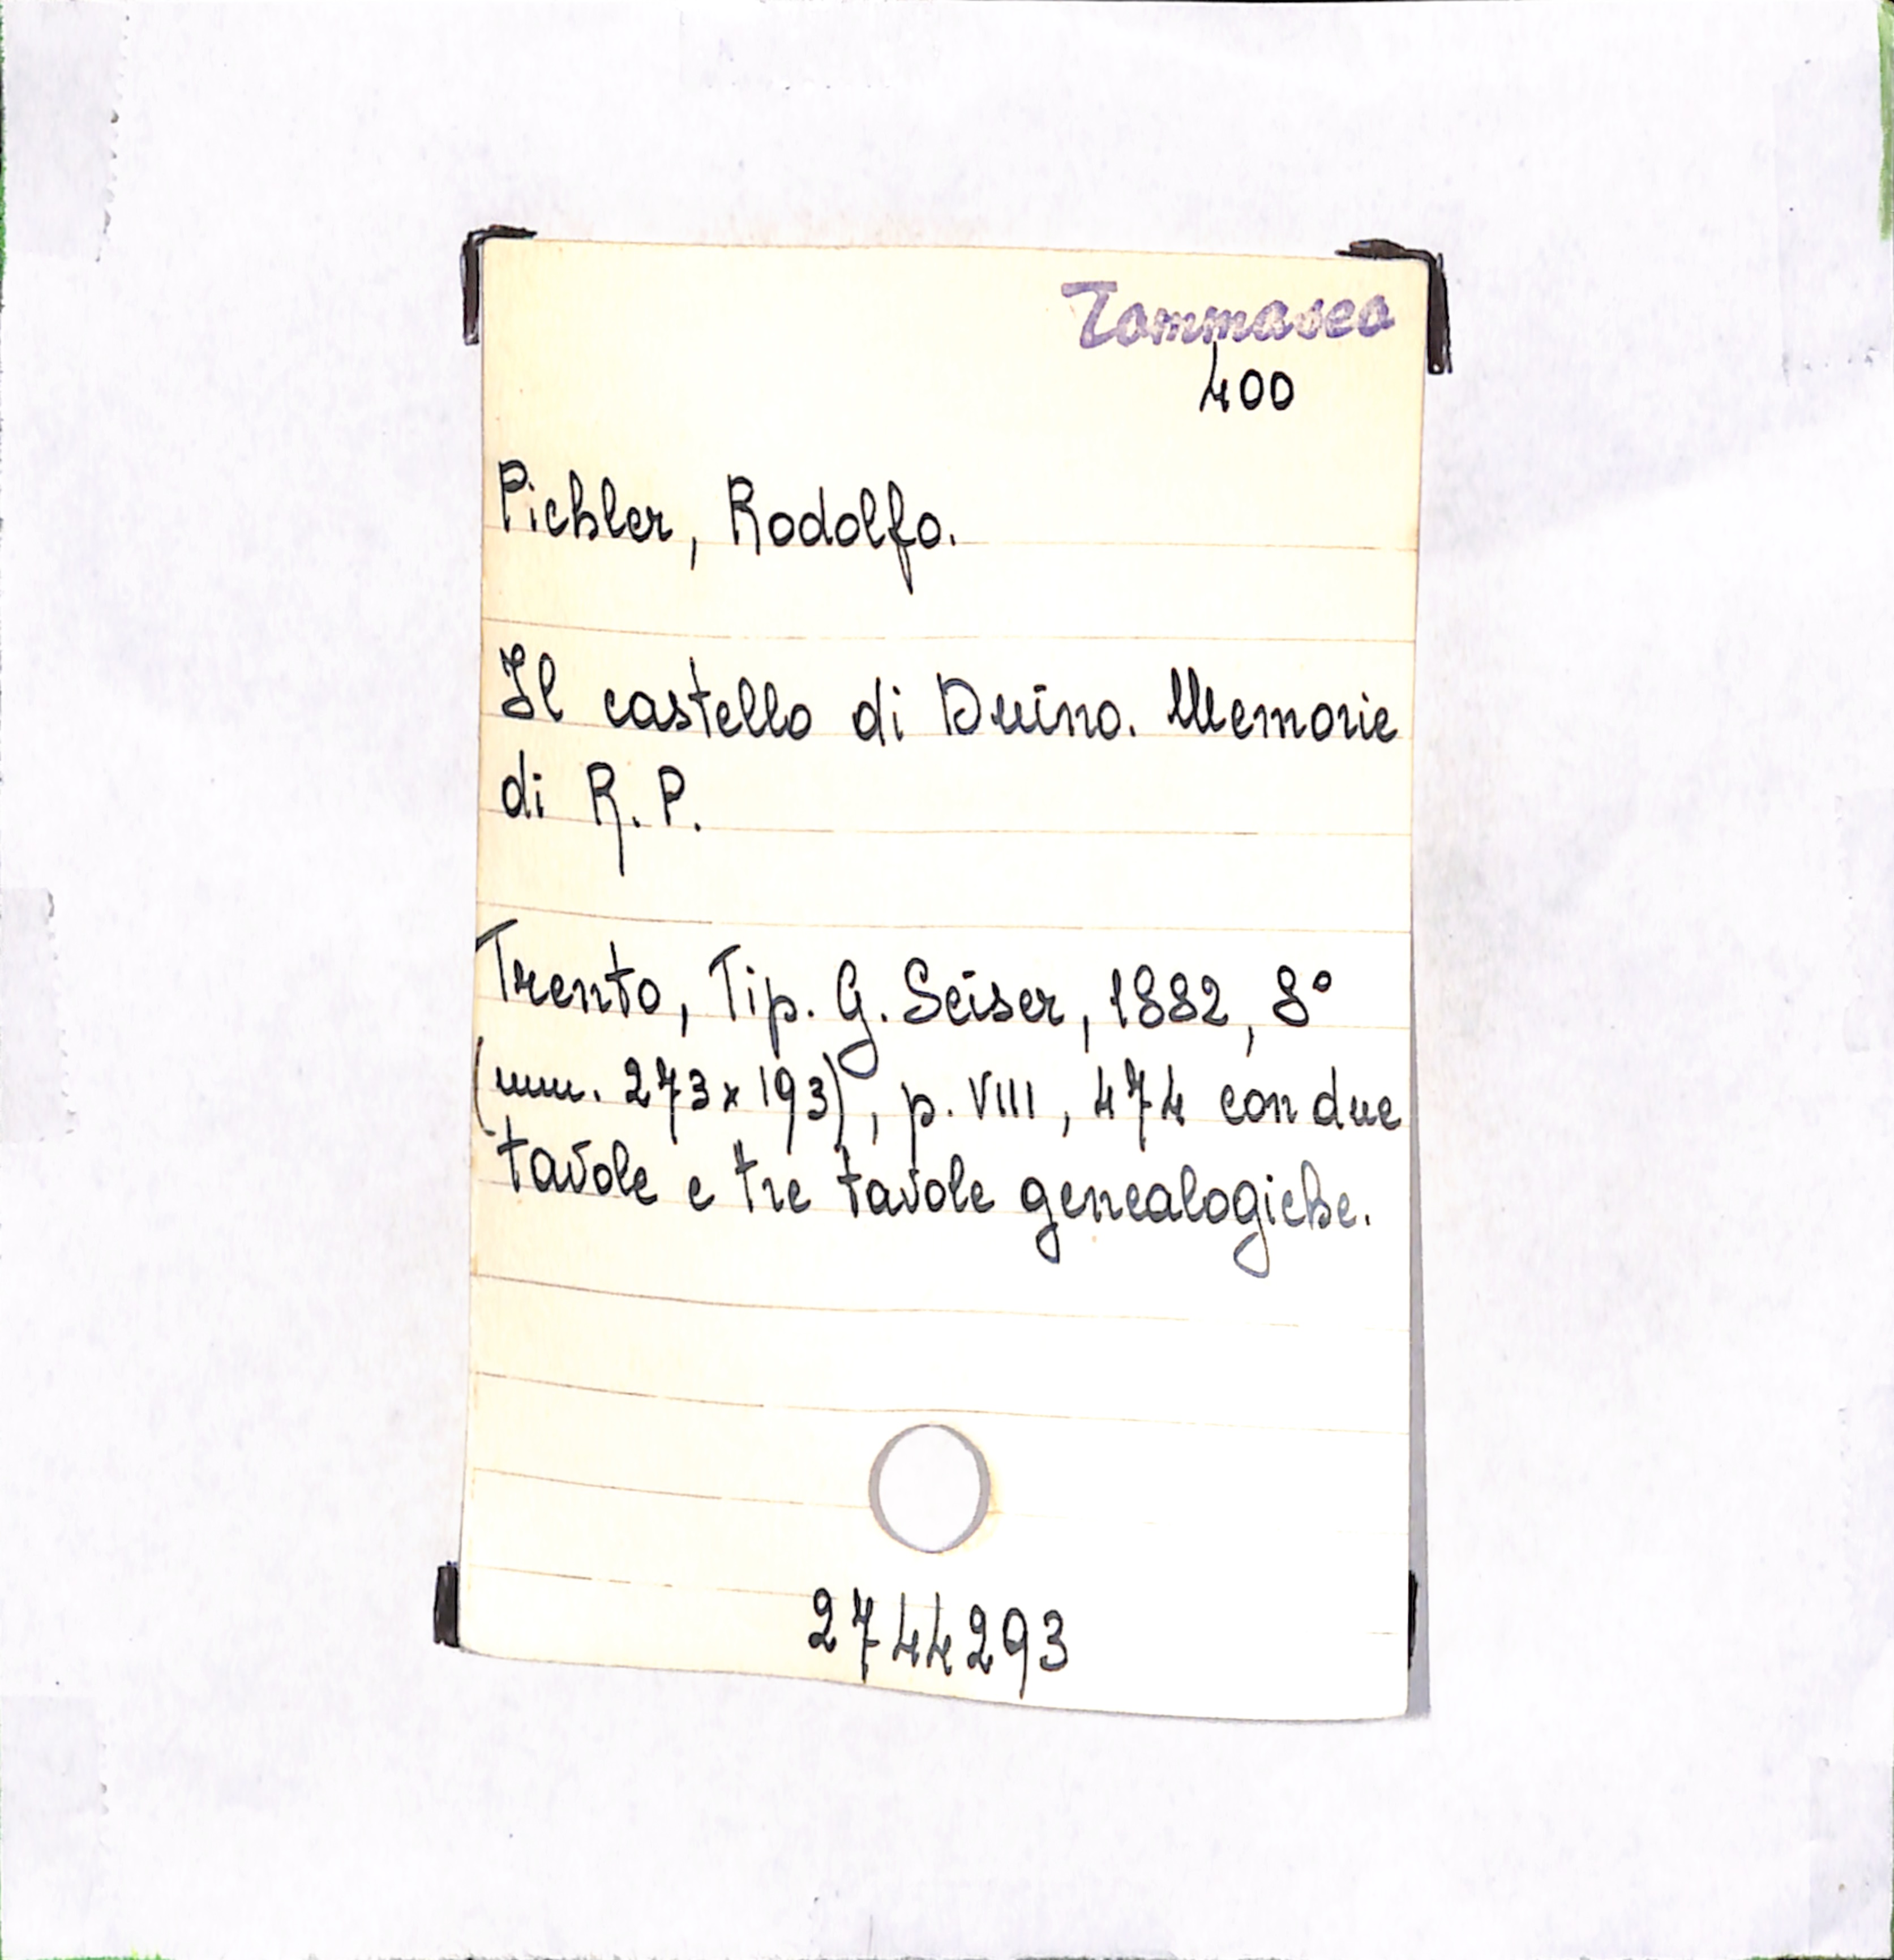 Tommaseo
400
Pichler, Rodolfo.
Il castello di Duino. Memorie
di R. P.
Trento, Tip. G. Seiser, 1882, 8°
(mm. 273 x 193), p. VIII, 474 con due
tavole e tre tavole genealogiche.
2744293